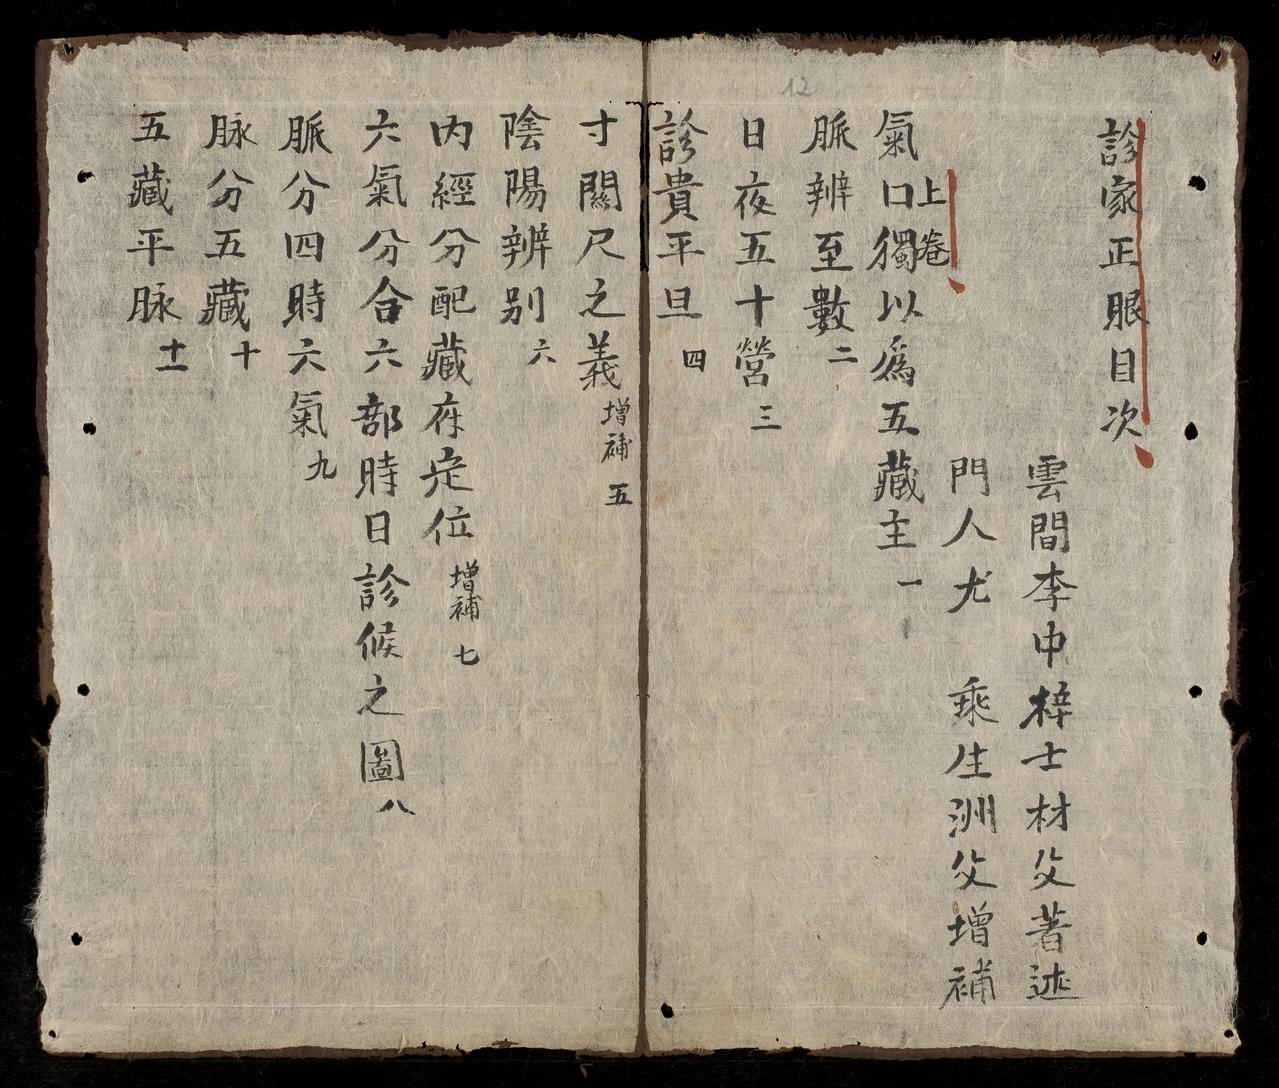 診家正眼目次
雲間李中梓士材父著述
門人尤 乘生洲父增補
上卷
氣口獨以爲五藏主 一
脈辨至數 二
日夜五十營 三
診貴平旦 四
寸關尺之義 增補 五
陰陽辨别 六
内經分配藏府定位 增補 七
六氣分合六部時日診候之圖 八
脈分四時六氣 九
脉分五藏 十
五藏平脉 十一
12